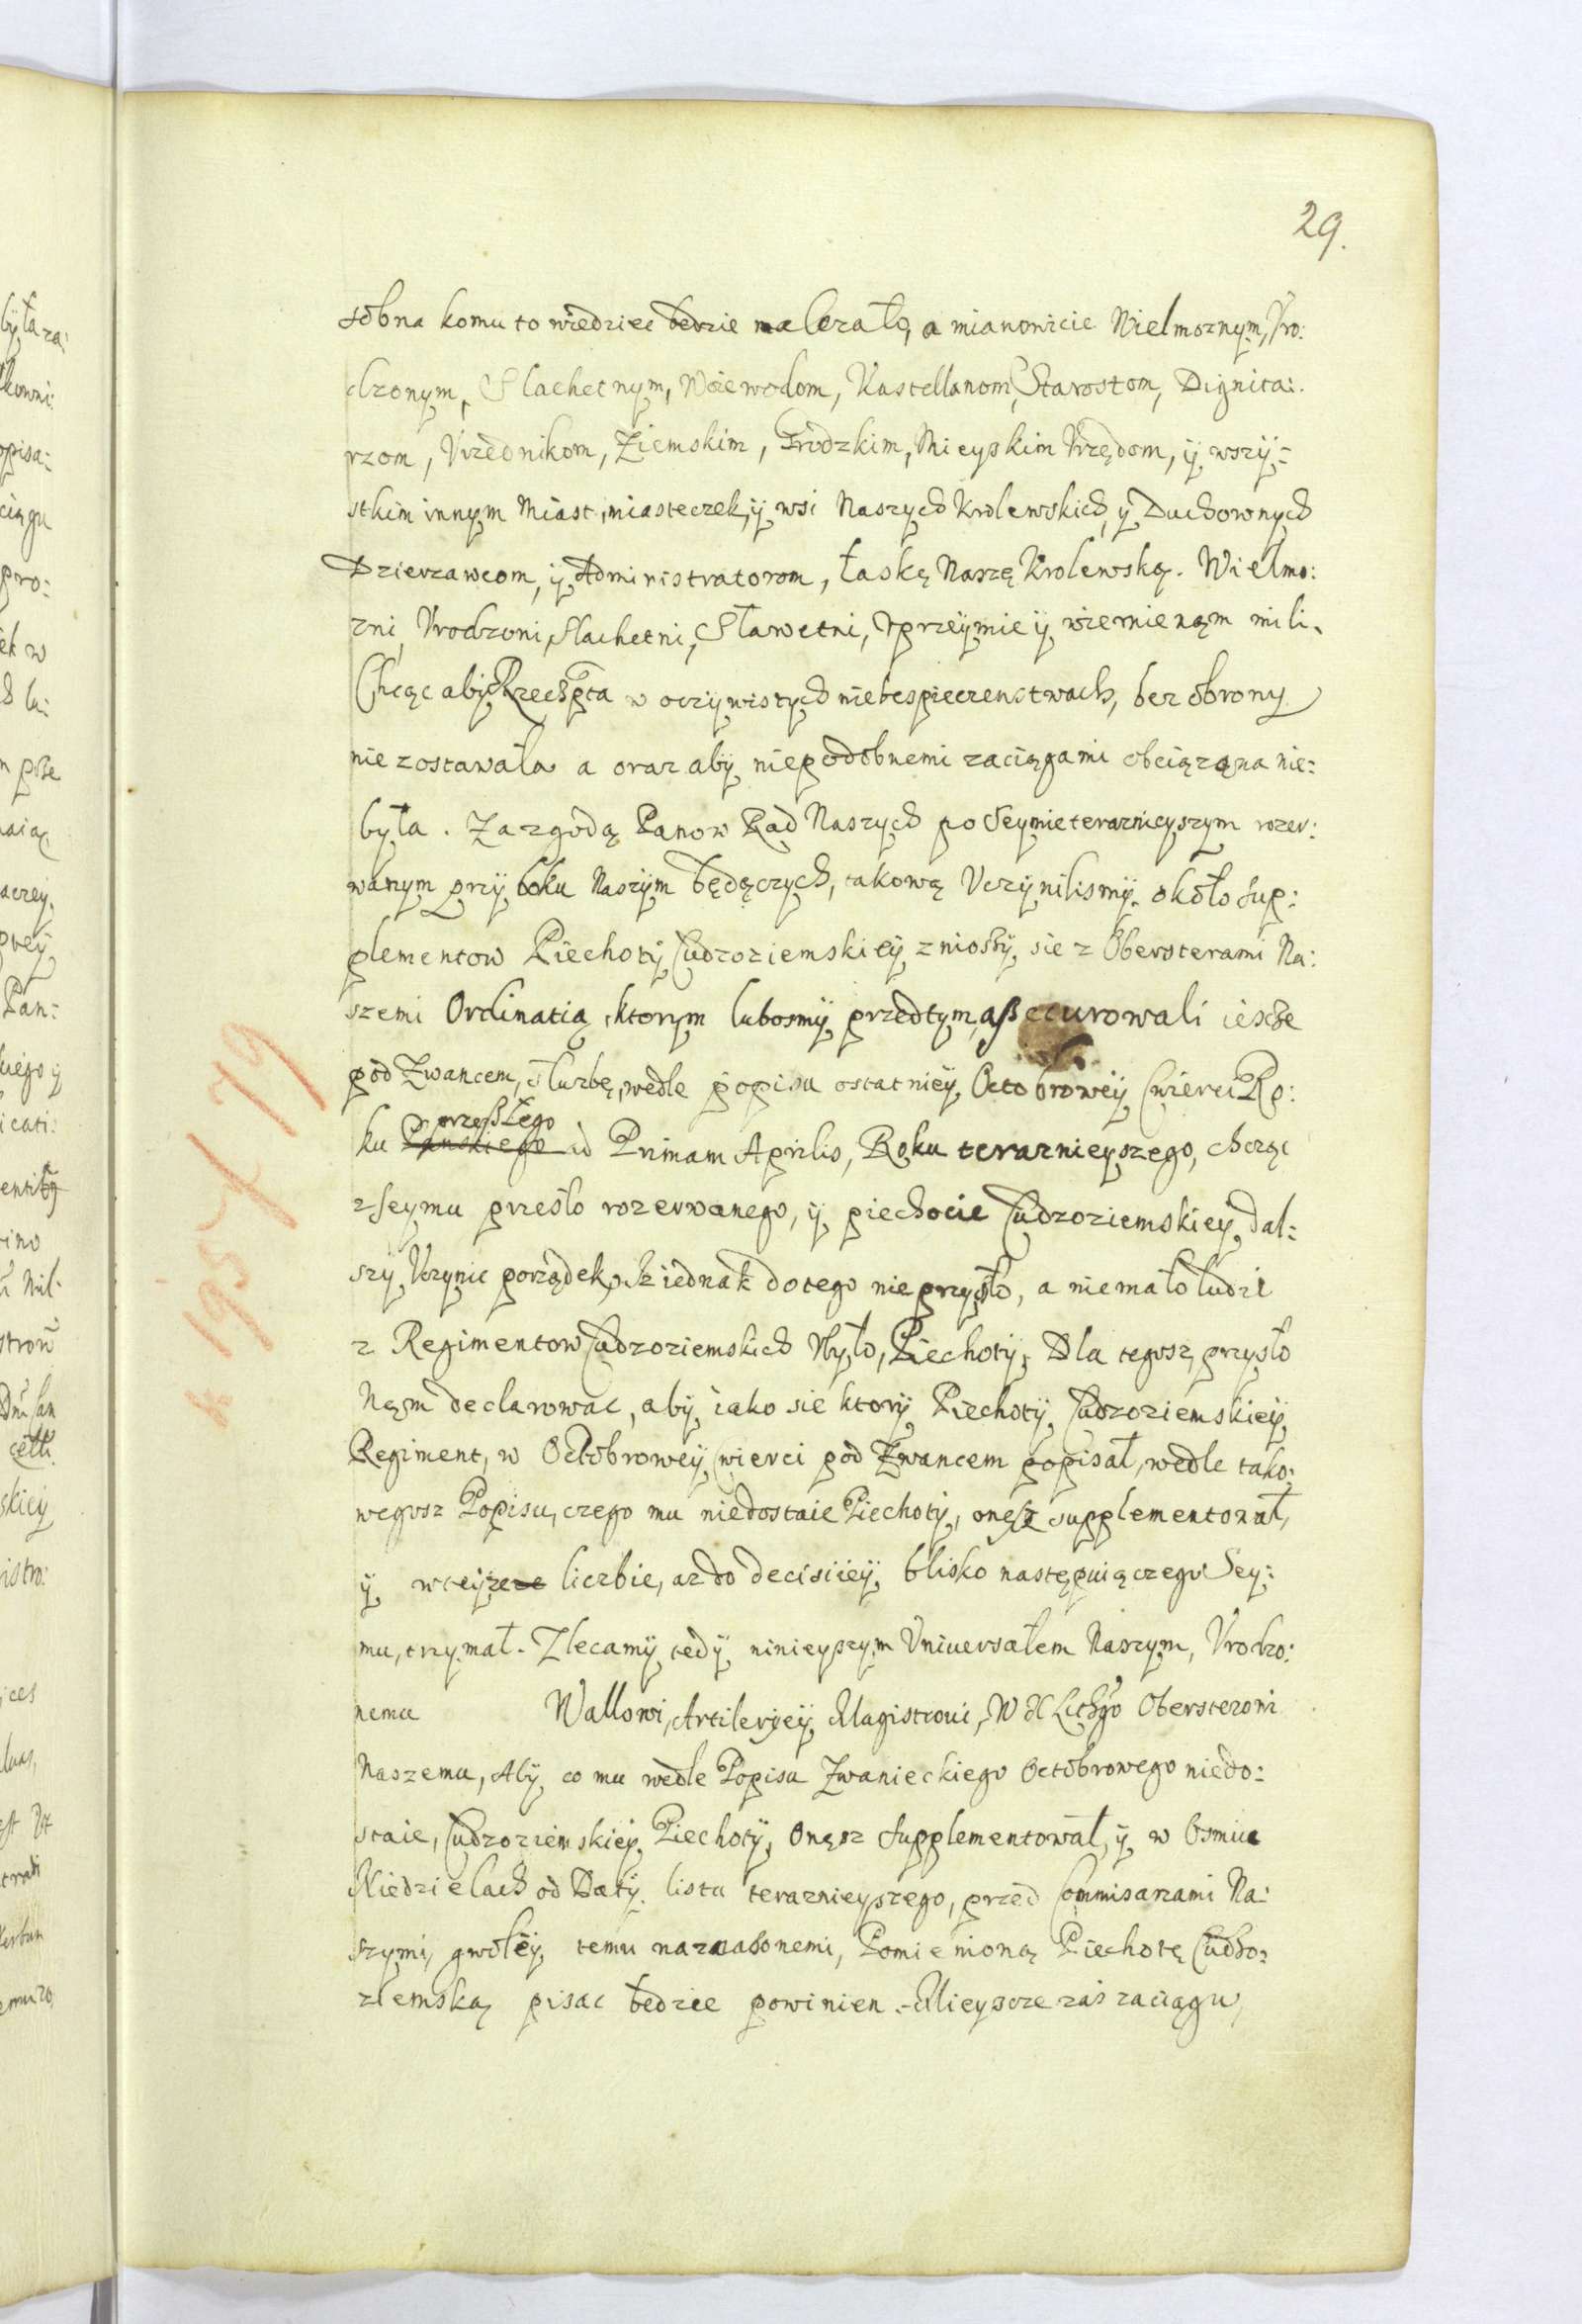 29.
sobna komu to wiedziec bedzie nalezało, a mianowicie Wielmoznym, Vro:
dzonym, Slachetnym, Woiewodom, Kastellanom, Starostom, Dignita:
rzom, Vrzednikom, Ziemskim, Grodzkim, Mieyskim Vrzędom, ÿ wszÿ:
stkim innym Miast, miasteczek, ÿ wsi Naszych Krolewskich, ÿ Duchownych
Dzierzawcom, ÿ Administratorom, łaskę Naszę Krolewską. Wielmo:
zni, Vrodzoni, Slachetni, Sławetni, Vprzeÿmie ÿ wiernie nąm mili.
Chcąc abÿ Rzeczpta w oczÿwistych niebespieczenstwach, bez obrony
nie zostawała a oraz abÿ niepodobnemi zaciągami obciązona nie:
była. Za zgodą Panow Rad Naszych po Seymie teraznieyszym rozer:
wanym przÿ boku Naszÿm będączych, takową Vczÿnilismÿ około sup:
plementow Piechotÿ Cudzoziemskieÿ zniosszÿ sie z Obersterami Na:
szemi Ordinatią, ktorym lubosmÿ przedtym aßecurowali iescze
pod Zwancem, słuzbę, wedle popisu ostatnieÿ Octobroweÿ Cwierci Ro:
ku Panskiego przeszłego ad Primam Aprilis, Roku teraznieyszego, chcząc
z Seymu przeslo rozerwanego, ÿ piechocie Cudzoziemskiey dal:
szÿ Vczynic porządek, Iz iednak do tego nie przyszło, a niemało ludzi
z Regimentow Cudzoziemskich Vbyło, Piechotÿ. Dla tegosz przyszło
Nąm declarowac, abÿ iako sie ktorÿ Piechotÿ Cudzoziemskieÿ
Regiment, w Octobroweÿ Cwierci pod Zwancem popisał, wedle tako:
wegosz Popisu, czego mu niedostaie Piechotÿ, onęsz supplementował,
ÿ w teÿze liczbie, az do decisiieÿ blisko następuiączego Sey:
mu, trzymał. Zlecamÿ tedÿ ninieyszym Vniuersałem Naszym, Vrodzo:
nemu Wallowi, Artileryeÿ Magistroui, W X Lithgo Oberszterowi
Naszemu, Abÿ co mu wedle Popisu Zwanieckiego Octobrowego niedo:
staie, Cudzoziemskieÿ Piechotÿ, Onąsz supplementował, ÿ w Osmiu
Niedzielach od Datÿ listu teraznieyszego, przed Commisarzami Na:
szymi, gwoleÿ temu naznaczonemi, Pomienioną Piechotę Cudzo:
ziemską pisac bedzie powinien. Mieyscze zas zaciągu,
K 195 f 79